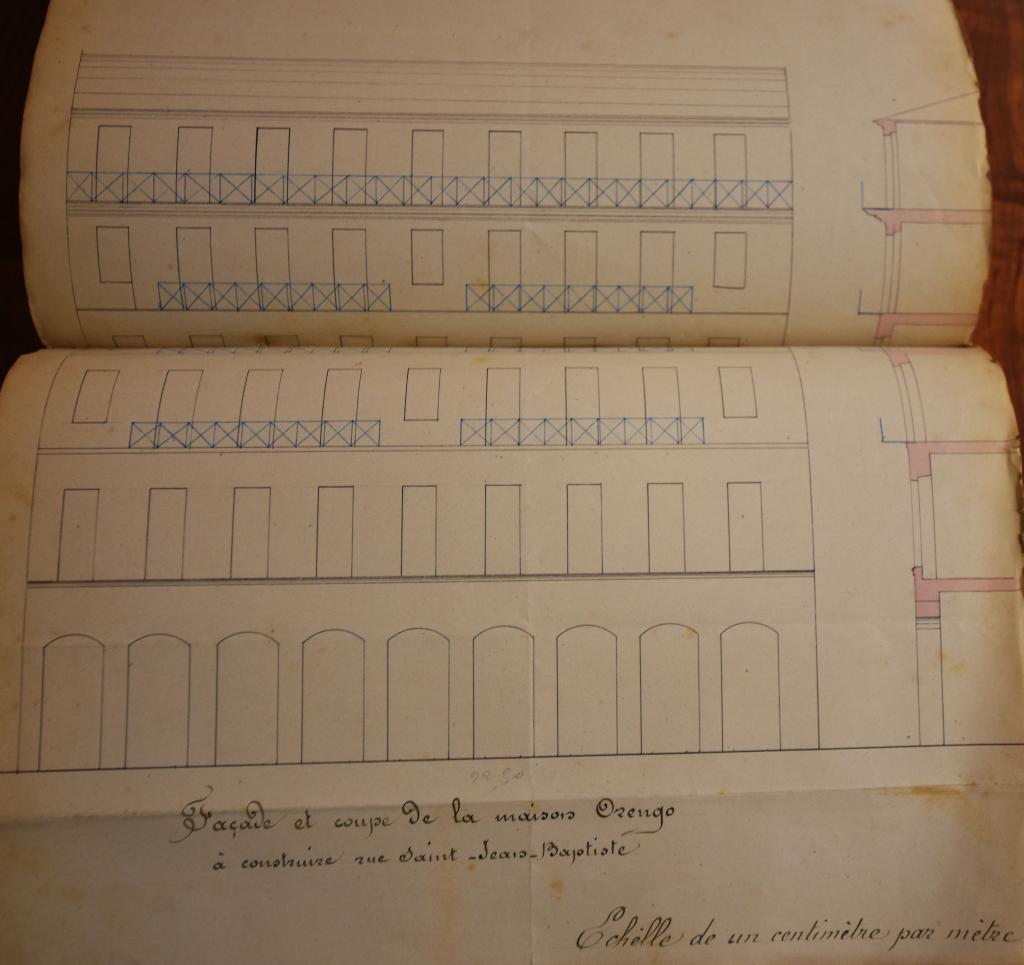 22,50
Façade et coupe de la maison Orengo
à construire rue Saint-Jean-Baptiste
Echelle de un centimètre par mètre